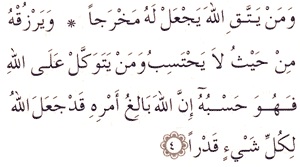 وَمَنْ يَتَّقِ اللهَ يَجْعَلْ لَهُ مَخْرَجاً * وَيَرْزُقْهُ
مِنْ حَيْثُ لاَ يَحْتَسِبُ وَمَنْ يَتَوَكَّلْ عَلَى اللهِ
فَهُوَ حَسْبُهُٓ إِنَّ اللهَ بَالِغُ أَمْرِهِ قَدْ جَعَلَ اللهُ
لِكُلِّ شَيْءٍ قَدْراً ٤